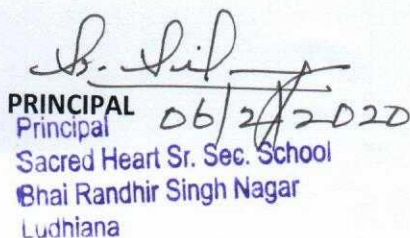 PRINCIPAL
06/2/2020
Principal
Sacred Heart Sr. Sec. School
Bhai Randhir Singh Nagar
Ludhiana